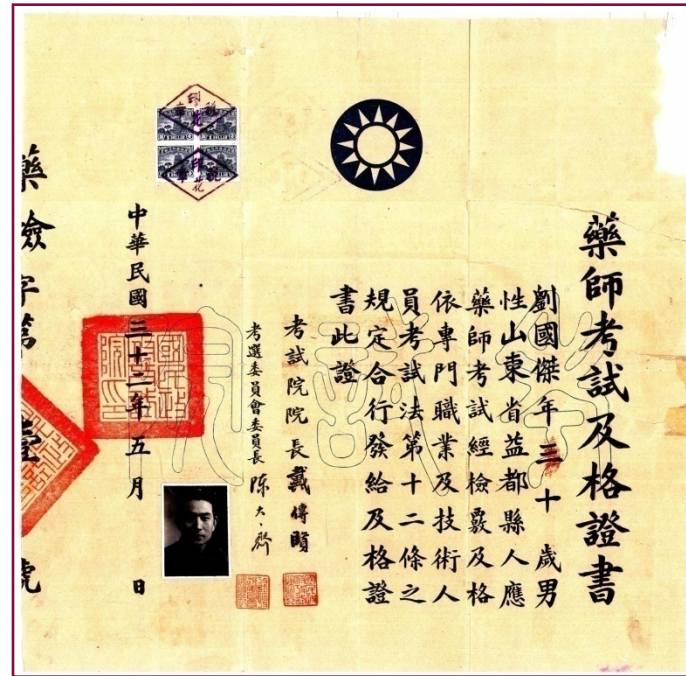 藥師考試及格證書
劉國傑年三十歲男
性山東省益都縣人應
藥師考試經檢覈及格
依專門職業及技術人
員考試法第十二條之
規定合行發給及格證
書此證
考試院院長戴傳賢
考選委員會委員長陳大齊
中華民國三十二年五月 日
藥檢字第壹 號
考試院